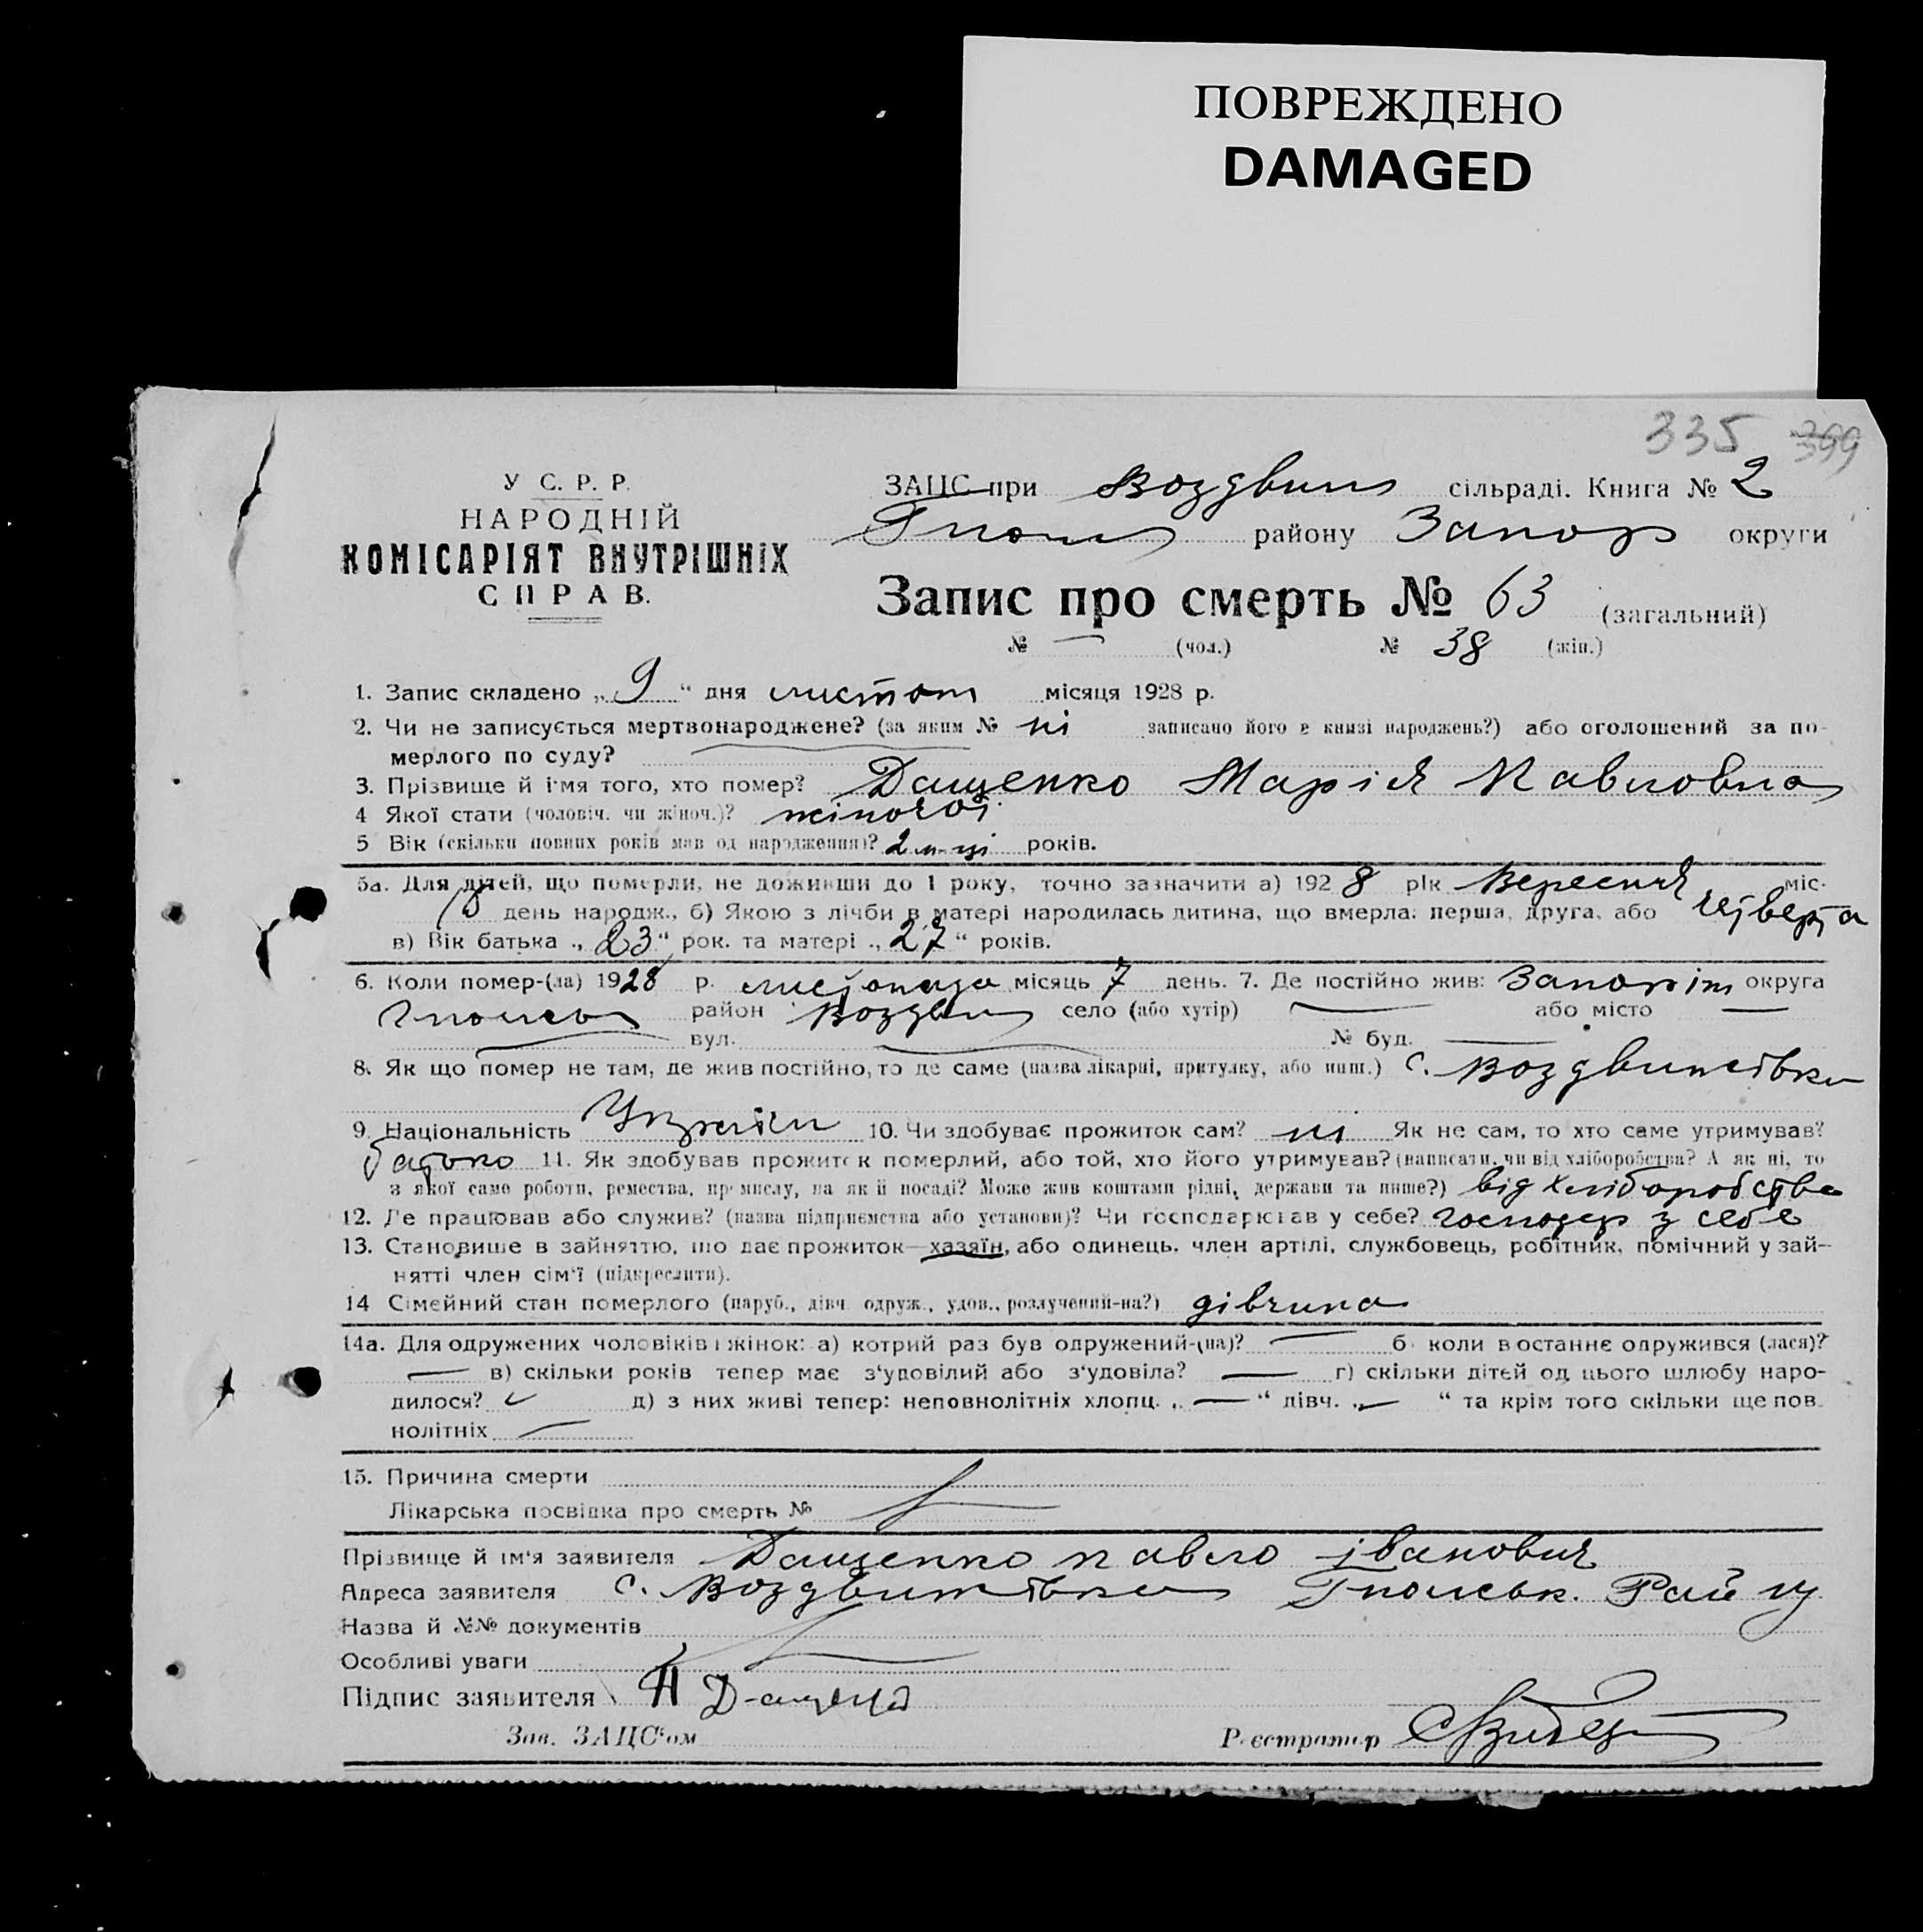 ПОВРЕЖДЕНО
DAMAGED
335 399
У С. Р. Р.
НАРОДНІЙ
КОМІСАРІЯТ ВНУТРІШНІХ
СПРАВ.
ЗАЦС при Воздвиж сільраді. Книга № 2
району Запор округи
Запис про смерть № 63 (загальний)
№ — (чол.) № 38 (жін.)
1. Запис складено „9“ дня листоп місяця 1928 р.
2. Чи не записується мертвонароджене? (за яким № ні записано його в книзі народжень?) або оголошений за по-
мерлого по суду?
3. Прізвище й ім'я того, хто помер? Дащенко Марія Павловна
4 Якої стати (чоловіч. чи жіноч.)? жіночої
5 Вік (скільки повних років мав од народження)? 2 м-ці років.
5а. Для дітей, що померли, не доживши до 1 року, точно зазначити а) 1928 рік Вересня міс.
день народж., б) Якою з лічби в матері народилась дитина, що вмерла: перша, друга, або четверта
в) Вік батька „23“ рок. та матері „27“ років.
6. Коли помер-(ла) 1928 р. листопада місяць 7 день. 7. Де постійно жив: Запоріж округа
район Воздвиж село (або хутір) — або місто —
вул. № буд. —
8. Як що помер не там, де жив постійно, то де саме (назва лікарні, притулку, або инш.) с. Воздвижівка
9. Національність Україн 10. Чи здобуває прожиток сам? ні Як не сам, то хто саме утримував?
батько 11. Як здобував прожиток померлий, або той, хто його утримував? (написати, чи від хліборобства? А як ні, то
з якої саме роботи, ремества, промислу, на якій посаді? Може жив коштами рідні, держави та инше?) від хліборобства
12. Де працював або служив? (назва підприємства або установи)? Чи господарював у себе? господар у себе
13. Становище в зайняттю, що дає прожиток—хазяїн, або одинець, член артілі, службовець, робітник, помічний у зай-
нятті член сім'ї (підкреслити).
14 Сімейний стан померлого (паруб., дівч. одруж., удов., розлучений-на?) дівчина
14а. Для одружених чоловіків і жінок: а) котрий раз був одружений-(на)? — б коли востаннє одружився (лася)?
— в) скільки років тепер має з'удовілий або з'удовіла? — г) скільки дітей од цього шлюбу наро-
дилося? д) з них живі тепер: неповнолітніх хлопц. „—“ дівч. „—“ та крім того скільки ще пов-
нолітніх —
15. Причина смерти
Лікарська посвідка про смерть №
Прізвище й ім'я заявителя Дащенко Павло Іванович
Адреса заявителя с. Воздвижівка Гпольськ. Рай ну
Назва й №№ документів
Особливі уваги
Підпис заявителя П Дащенко
Зав. ЗАЦС'ом Реєстратор